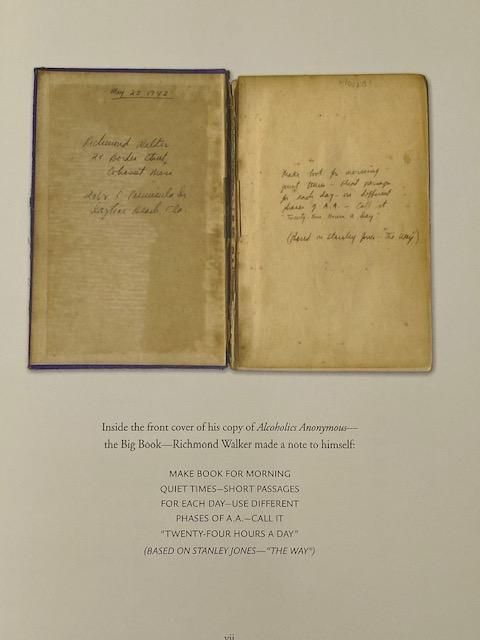 May 22 1942
Richmond Walker
Border Street
Cohasset Mass
Peninsula Dr
Daytona Beach, Fla.
Make book for morning
quiet times – short passages
for each day – use different
phases of A.A. – Call it
"Twenty four hours a day"
(Based on Stanley Jones "The Way")
Inside the front cover of his copy of Alcoholics Anonymous—
the Big Book—Richmond Walker made a note to himself:
MAKE BOOK FOR MORNING
QUIET TIMES—SHORT PASSAGES
FOR EACH DAY—USE DIFFERENT
PHASES OF A.A.—CALL IT
“TWENTY-FOUR HOURS A DAY”
(BASED ON STANLEY JONES—“THE WAY”)
vii